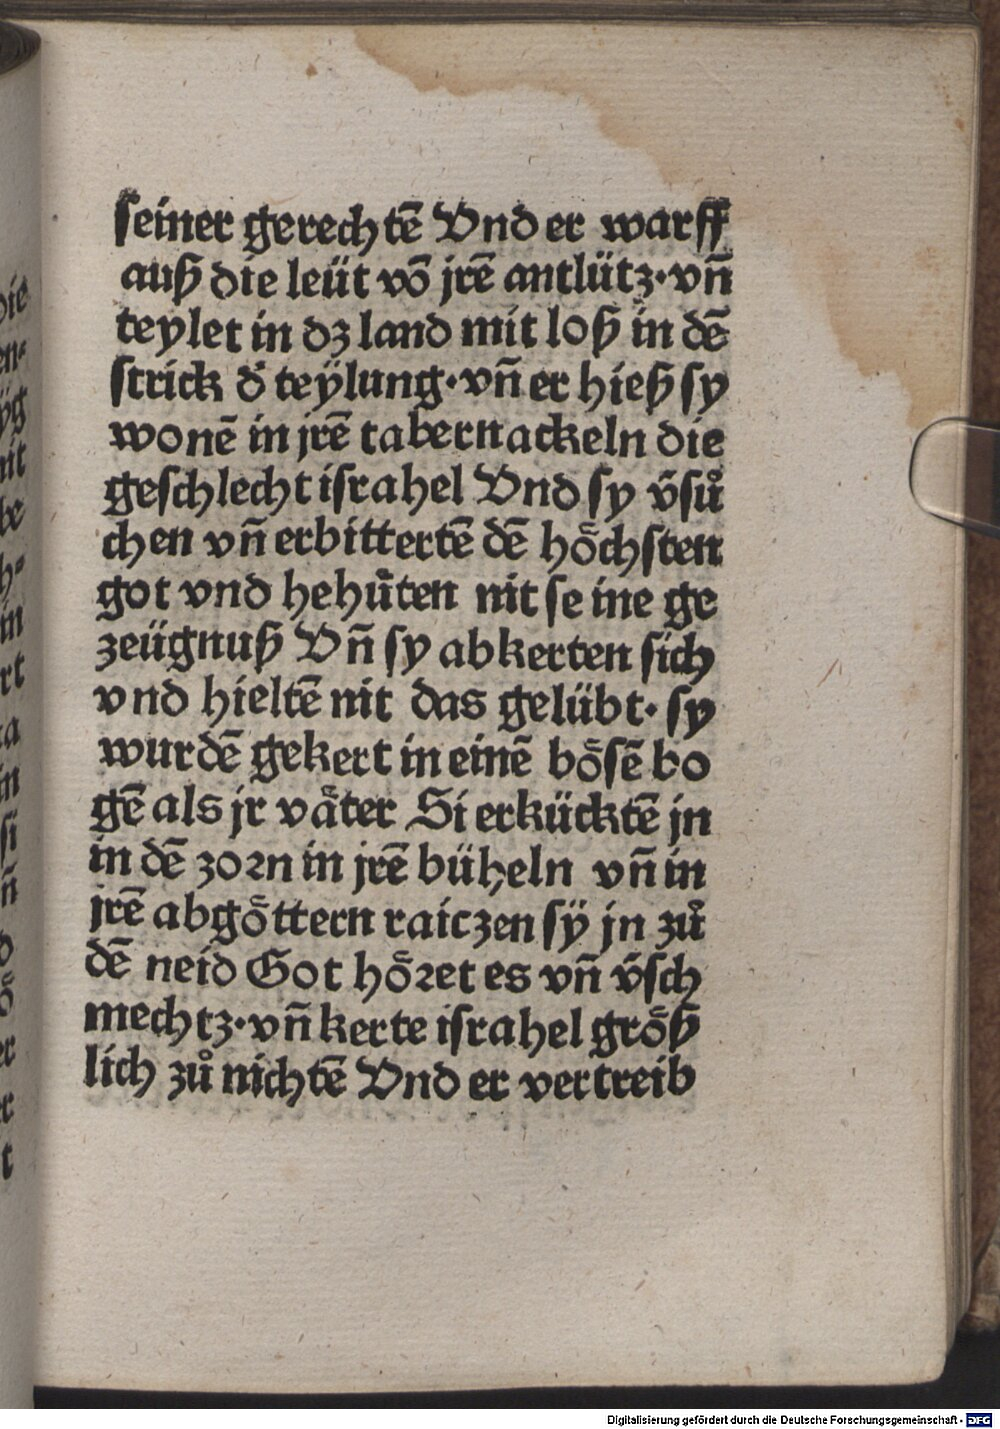 seiner gerechtē Vnd er warff
auß die leüt vō jrē antlütz·vn̄
teylet in dz land mit loß in dē
strick d̄ teÿlung·vn̄ er hieß sy
wonē in jrē tabernackeln die
geschlecht israhel Vnd sy v̄sů
chen vn̄ erbittertē dē hoͤchsten
got vnd hehuͤten nit se ine ge
zeügnuß Vn̄ sy abkerten sich
vnd hieltē nit das gelübt· sy
wurdē gekert in einē boͤsē bo
gē als jr vaͤter Si erkücktē jn
in dē zoꝛn in jrē büheln vn̄ in
jrē abgoͤttern raiczen sÿ jn zů
dē neid Got hoͤꝛet es vn̄ v̄sch
mechtz·vn̄ kerte israhel groͤß
lich zů nichtē Vnd er vertreib
die
en⸗
ÿg
nit
be
h⸗
in
rt
ta
in
si
n̄
er
t
Digitalisierung gefördert durch die Deutsche Forschungsgemeinschaft - DFG